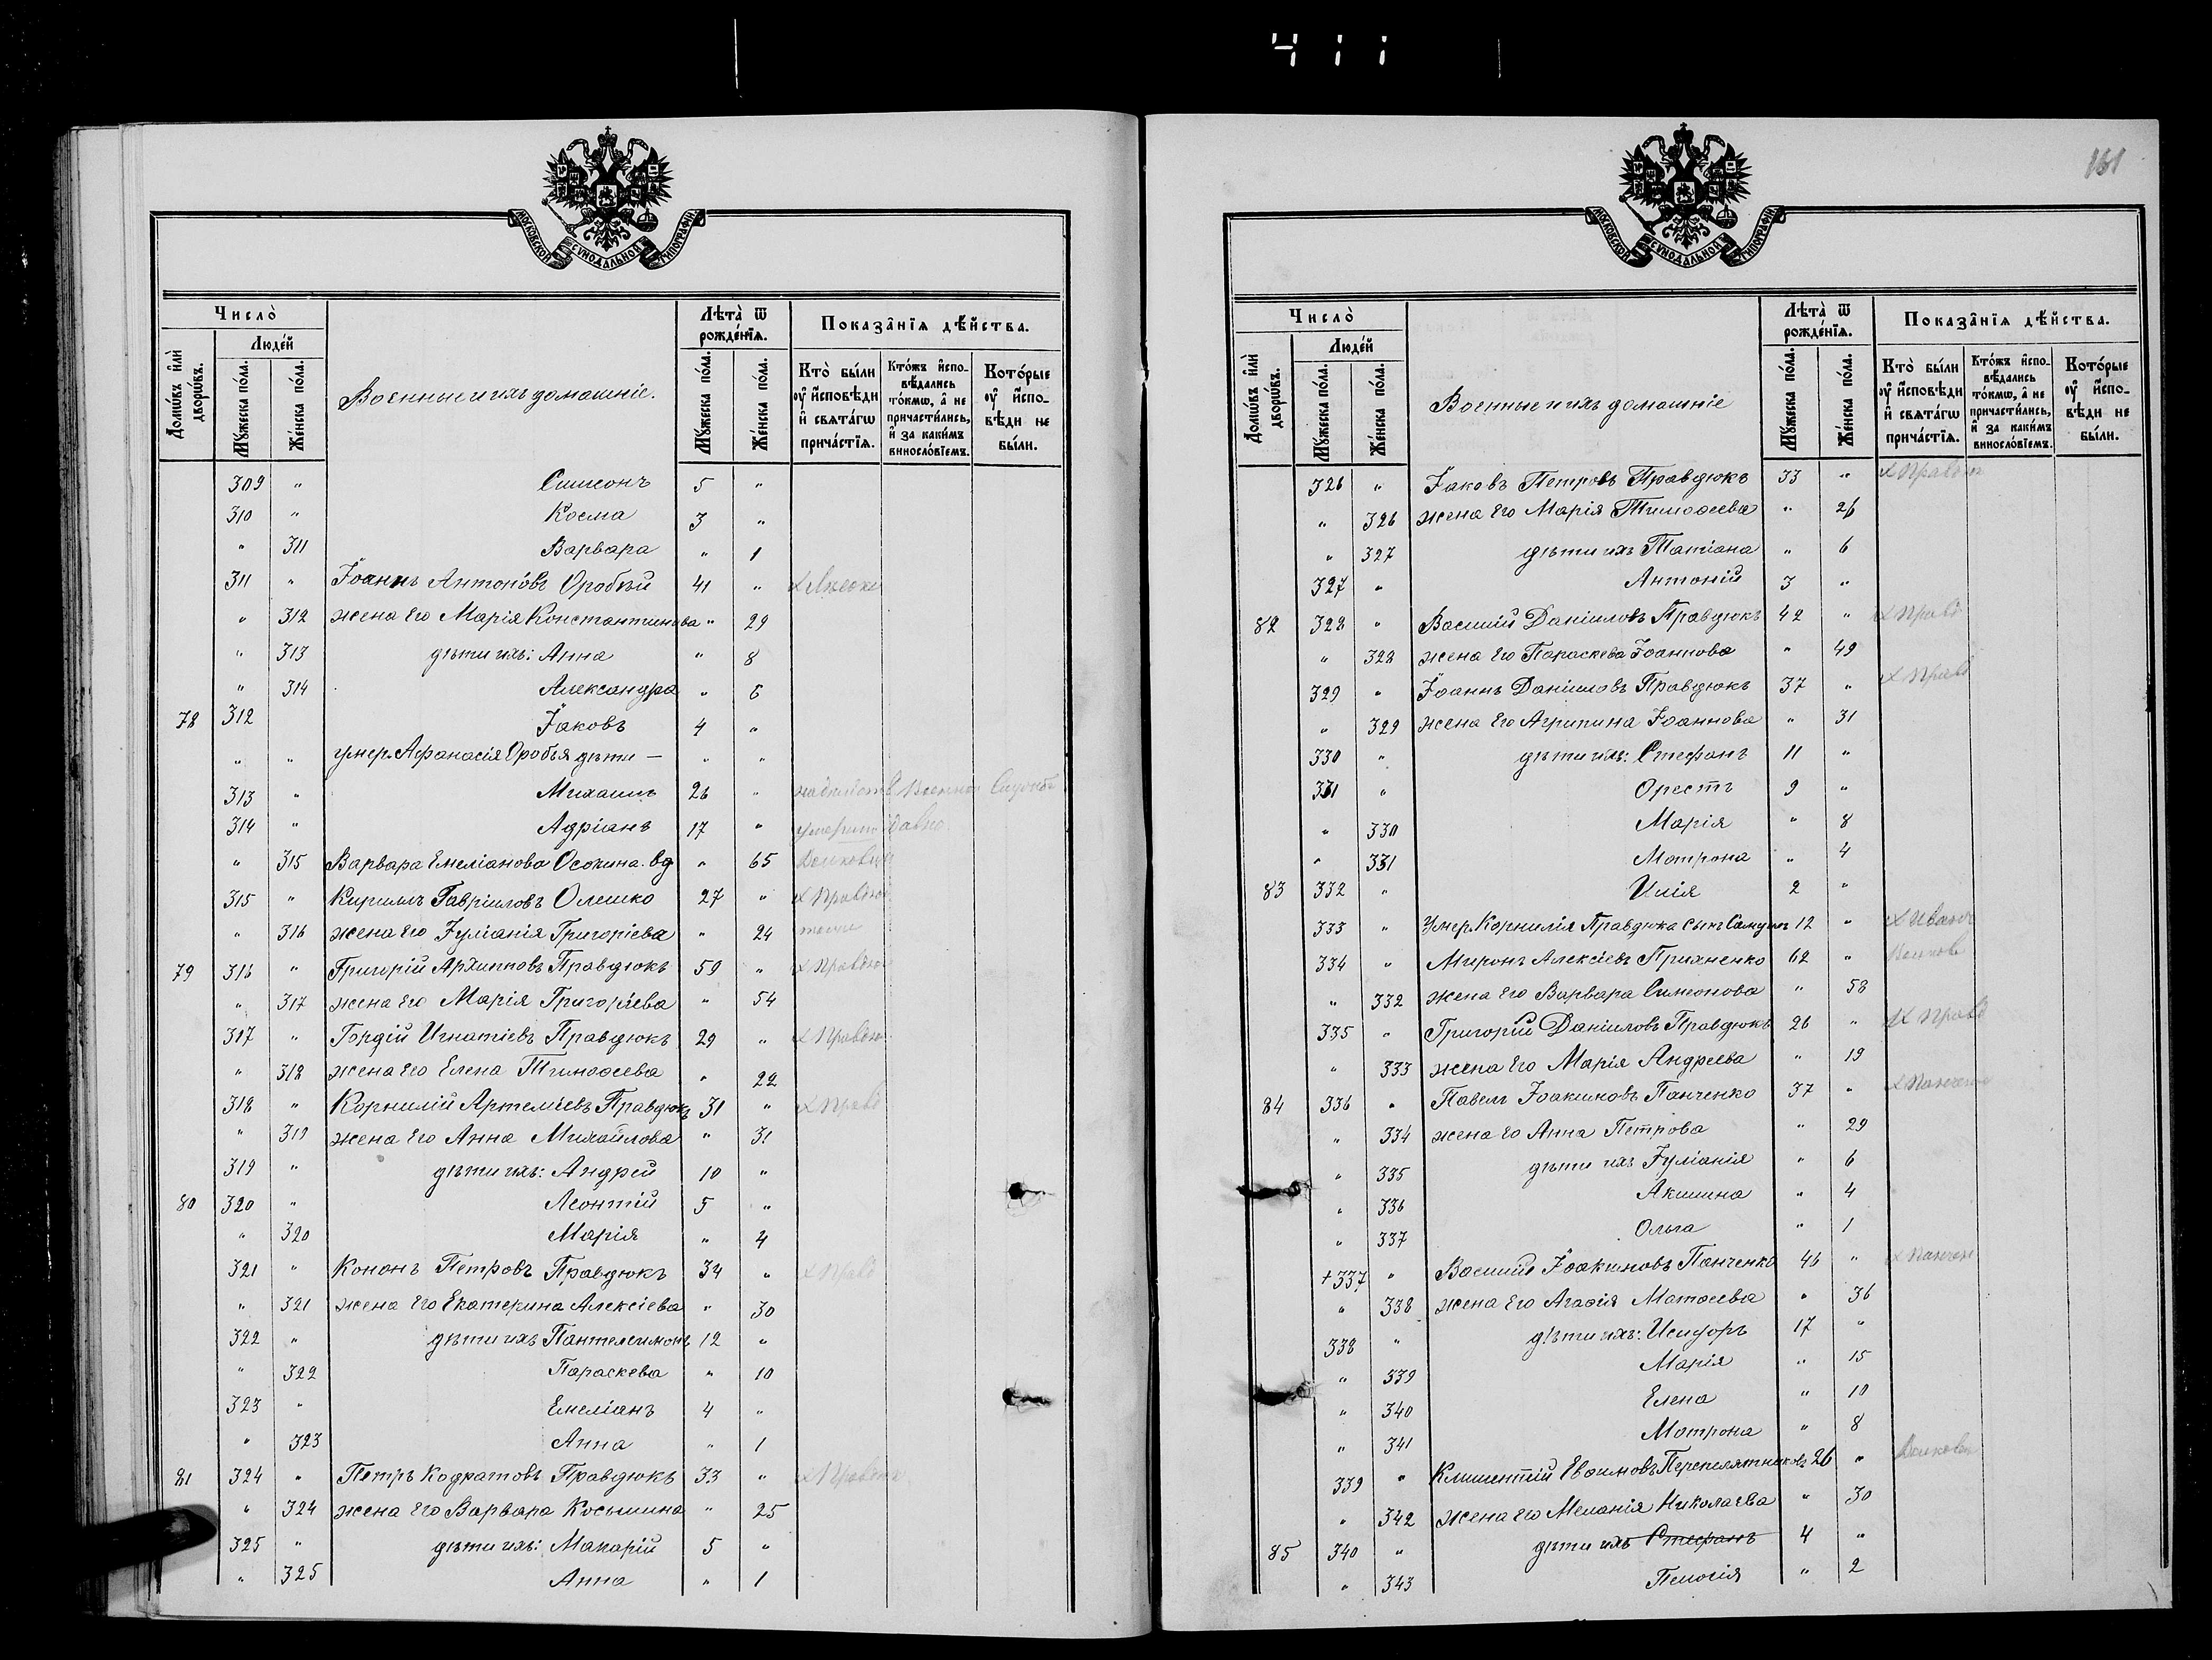 411
МОСКОВСКОЙ СѴНОДАЛЬНОЙ ТИПОГРАФІИ
Число̀
Домѡвъ и҆лѝ дворѡвъ.
Люде́й
Мꙋжеска по́ла.
Же́нска по́ла.
Военные и ихъ домашніе.
Лѣта̀ ѿ рожде́нїѧ.
Мꙋжеска по́ла.
Же́нска по́ла.
Показа̂нїѧ дѣ́йства.
Кто̀ бы́ли оу҆ и҆сповѣди и҆ свѧта́гѡ прича́стїѧ.
Кто́жъ и҆спо-вѣ́дались то́кмѡ, а҆ не причасти́лись, и҆ за каки́мъ виносло́вїемъ.
Кото́рые оу҆ и҆спо-вѣди не бы́ли.
309 " Симеонъ 5 "
310 " Косма 3 "
" 311 Варвара " 1
311 " Іоаннъ Антоновъ Оробѣй 41 "
" 312 жена его Марія Константинова " 29
" 313 дѣти ихъ: Анна " 8
" 314 Александра " 6
78 312 Іаковъ 4 "
" " умер. Афанасія Оробья дѣти — " "
313 " Михаилъ 26 " Военной Службѣ
314 " Адріанъ 17 " давно
" 315 Варвара Емеліанова Осокина вд " 65
315 " Кириллъ Гавріиловъ Олешко 27 " х Правдюк
" 316 жена его Іуліанія Григоріева " 24
79 316 " Григорій Архипповъ Правдюкъ 59 " х Правдюк
" 317 жена его Марія Григоріева " 54
317 " Гордій Игнатіевъ Правдюкъ 29 " х Правдюк
" 318 жена его Елена Тимоѳеева " 22
318 " Корнилій Артеміевъ Правдюкъ 31 " х Правд
" 319 жена его Анна Михайлова " 31
319 " дѣти ихъ: Андрей 10 "
80 320 " Леонтій 5 "
" 320 Марія " 4
321 " Кононъ Петровъ Правдюкъ 34 " х Правд
" 321 жена его Екатерина Алексіева " 30
322 " дѣти ихъ Пантелеимонъ 12 "
" 322 Параскева " 10
323 " Емеліанъ 4 "
" 323 Анна " 1
81 324 " Петръ Кодратовъ Правдюкъ 33 " х Правдюк
" 324 жена его Варвара Косьмина " 25
325 " дѣти ихъ: Макарій 5 "
" 325 Анна " 1
161
МОСКОВСКОЙ СѴНОДАЛЬНОЙ ТИПОГРАФІИ
Число̀
Домѡвъ и҆лѝ дворѡвъ.
Люде́й
Мꙋжеска по́ла.
Же́нска по́ла.
Военные и ихъ домашніе
Лѣта̀ ѿ рожде́нїѧ.
Мꙋжеска по́ла.
Же́нска по́ла.
Показа̂нїѧ дѣ́йства.
Кто̀ бы́ли оу҆ и҆сповѣди и҆ свѧта́гѡ прича́стїѧ.
Кто́жъ и҆спо-вѣ́дались то́кмѡ, а҆ не причасти́лись, и҆ за каки́мъ виносло́вїемъ.
Кото́рые оу҆ и҆спо-вѣди не бы́ли.
326 " Іаковъ Петровъ Правдюкъ 33 " х Правдюк
" 326 жена его Марія Тимоѳеева " 26
" 327 дѣти ихъ Татіана " 6
327 " Антоній 3 "
82 328 " Василій Даніиловъ Правдюкъ 42 " х Правд
" 328 жена его Параскева Іоаннова " 49
329 " Іоаннъ Даніиловъ Правдюкъ 37 " х Правд
" 329 жена его Агрипина Іоаннова " 31
330 " дѣти ихъ: Стефанъ 11 "
331 " Орестъ 9 "
" 330 Марія " 8
" 331 Матрона " 4
83 332 " Илія 2 "
333 " Умер. Корнилія Правдюка сынъ Самуилъ 12 "
334 " Миронъ Алексіевъ Прихненко 62 "
" 332 жена его Варвара Симеонова " 58
335 " Григорій Даніиловъ Правдюкъ 26 " х Правд
" 333 жена его Марія Андреева " 19
84 336 " Павелъ Іоакимовъ Панченко 37 " х Панченк
" 334 жена его Анна Петрова " 29
" 335 дѣти ихъ Іуліанія " 6
" 336 Акилина " 4
" 337 Ольга " 1
+337 " Василій Іоакимовъ Панченко 46 " х Панчен
" 338 жена его Агафія Матѳеева " 36
338 " дѣти ихъ: Исидоръ 17 "
" 339 Марія " 15
" 340 Елена " 10
" 341 Матрона " 8
339 " Климентій Евѳимовъ Перепелятниковъ 26 "
" 342 жена его Меланія Николаева " 30
85 340 " дѣти ихъ Стефанъ 4 "
" 343 Пелагія " 2